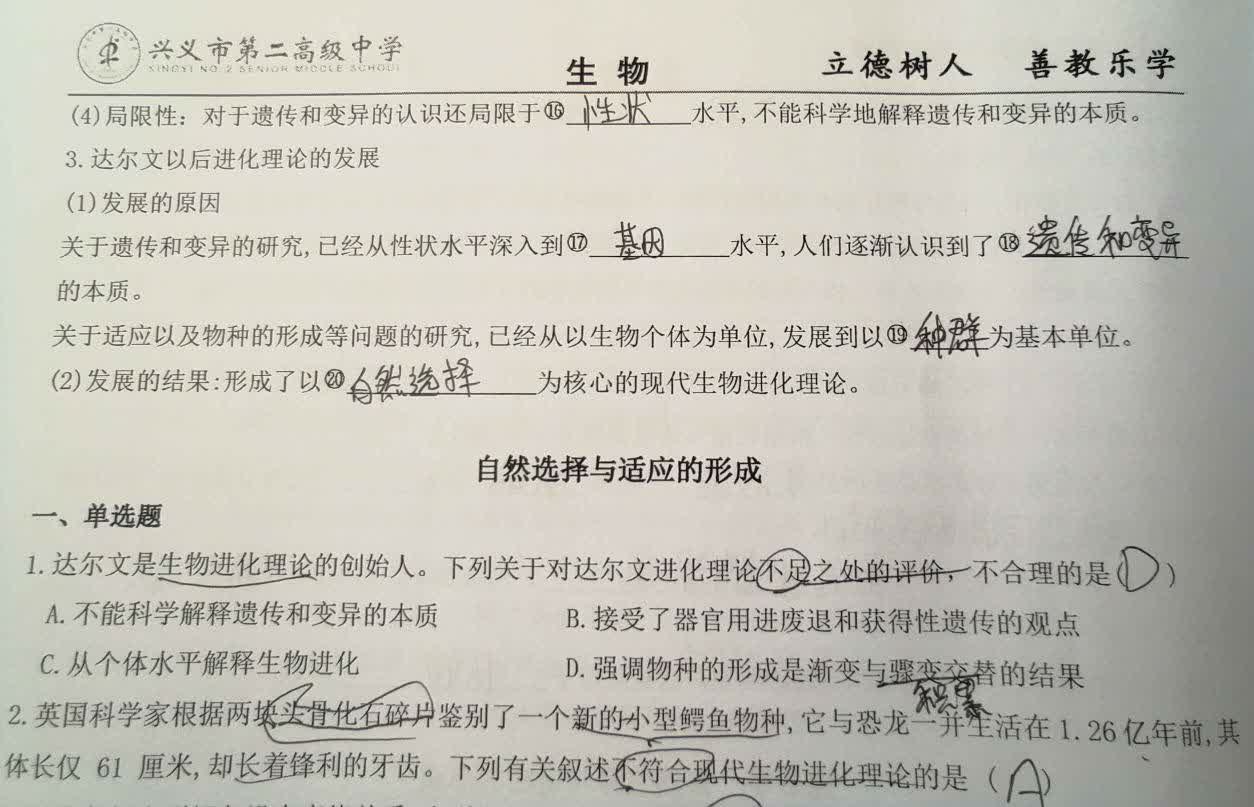 兴义市第二高级中学
XINGYI NO.2 SENIOR MIDDLE SCHOOL
生物
立德树人 善教乐学
(4)局限性：对于遗传和变异的认识还局限于⑯性状水平,不能科学地解释遗传和变异的本质。
3.达尔文以后进化理论的发展
(1)发展的原因
关于遗传和变异的研究,已经从性状水平深入到⑰基因水平,人们逐渐认识到了⑱遗传和变异
的本质。
关于适应以及物种的形成等问题的研究,已经从以生物个体为单位,发展到以⑲种群为基本单位。
(2)发展的结果:形成了以⑳自然选择为核心的现代生物进化理论。
自然选择与适应的形成
一、单选题
1.达尔文是生物进化理论的创始人。下列关于对达尔文进化理论不足之处的评价，不合理的是(D)
A.不能科学解释遗传和变异的本质 B.接受了器官用进废退和获得性遗传的观点
C.从个体水平解释生物进化 D.强调物种的形成是渐变与骤变交替的结果
积累
2.英国科学家根据两块头骨化石碎片鉴别了一个新的小型鳄鱼物种,它与恐龙一并生活在1.26亿年前,其
体长仅 61 厘米,却长着锋利的牙齿。下列有关叙述不符合现代生物进化理论的是（A）